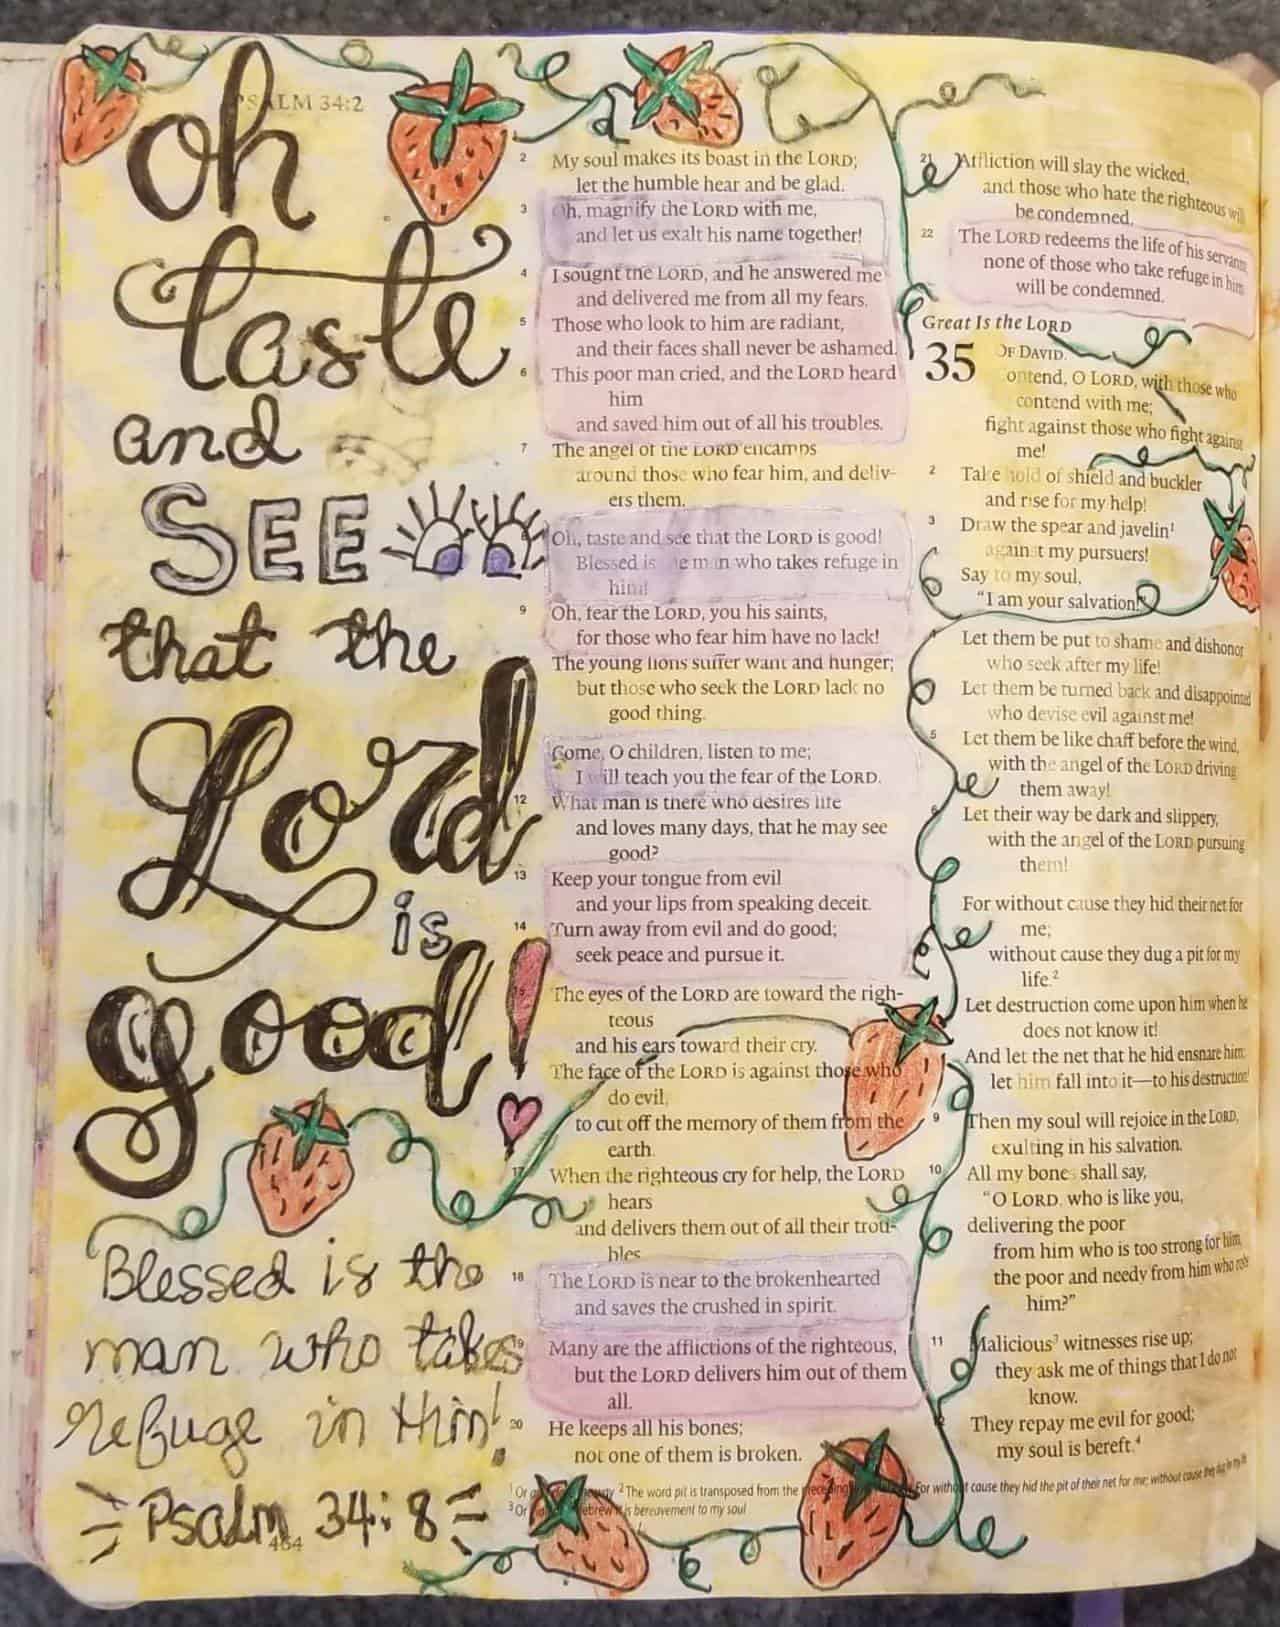 PSALM 34:2
oh
taste
and
SEE
that the
Lord
is
good!
Blessed is the
man who takes
refuge in Him!
Psalm 34:8
464
2 My soul makes its boast in the LORD;
let the humble hear and be glad.
3 Oh, magnify the LORD with me,
and let us exalt his name together!
4 I sought the LORD, and he answered me
and delivered me from all my fears.
5 Those who look to him are radiant,
and their faces shall never be ashamed.
6 This poor man cried, and the LORD heard
him
and saved him out of all his troubles.
7 The angel of the LORD encamps
around those who fear him, and deliv-
ers them.
Oh, taste and see that the LORD is good!
Blessed is the man who takes refuge in
him!
9 Oh, fear the LORD, you his saints,
for those who fear him have no lack!
The young lions suffer want and hunger;
but those who seek the LORD lack no
good thing.
Come, O children, listen to me;
I will teach you the fear of the LORD.
12 What man is there who desires life
and loves many days, that he may see
good?
13 Keep your tongue from evil
and your lips from speaking deceit.
14 Turn away from evil and do good;
seek peace and pursue it.
The eyes of the LORD are toward the righ-
teous
and his ears toward their cry.
The face of the LORD is against those who
do evil,
to cut off the memory of them from the
earth.
17 When the righteous cry for help, the LORD
hears
and delivers them out of all their trou-
bles.
18 The LORD is near to the brokenhearted
and saves the crushed in spirit.
19 Many are the afflictions of the righteous,
but the LORD delivers him out of them
all.
20 He keeps all his bones;
not one of them is broken.
21 Affliction will slay the wicked,
and those who hate the righteous will
be condemned.
22 The LORD redeems the life of his servants;
none of those who take refuge in him
will be condemned.
Great Is the LORD
35 OF DAVID.
Contend, O LORD, with those who
contend with me;
fight against those who fight against
me!
2 Take hold of shield and buckler
and rise for my help!
3 Draw the spear and javelin1
against my pursuers!
Say to my soul,
"I am your salvation!"
4 Let them be put to shame and dishonor
who seek after my life!
Let them be turned back and disappointed
who devise evil against me!
5 Let them be like chaff before the wind,
with the angel of the LORD driving
them away!
6 Let their way be dark and slippery,
with the angel of the LORD pursuing
them!
For without cause they hid their net for
me;
without cause they dug a pit for my
life.2
Let destruction come upon him when he
does not know it!
And let the net that he hid ensnare him;
let him fall into it—to his destruction!
9 Then my soul will rejoice in the LORD,
exulting in his salvation.
10 All my bones shall say,
"O LORD, who is like you,
delivering the poor
from him who is too strong for him,
the poor and needy from him who robs
him?"
11 Malicious3 witnesses rise up;
they ask me of things that I do not
know.
They repay me evil for good;
my soul is bereft.4
1 Or 2 The word pit is transposed from the preceding For without cause they hid the pit of their net for me; without cause they dug for my life
3 Or Hebrew it is bereavement to my soul